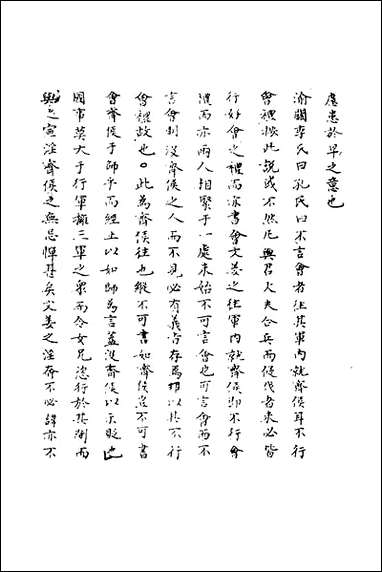 虑患於早之意也
渝關李氏曰孔氏曰不言會者往其軍內就齊侯耳不行
會禮按此說或不然凡興君大夫合兵而侵伐者未必皆
行好會之禮而亦書會文姜之往軍內就齊侯即不行會
禮而亦兩人相聚于一處未始不可言會也可言會而不
言會則沒齊侯之人而不見必有義旨存焉耳以其不行
會禮故也○此為齊侯往也縱不可書如齊侯豈不可書
會齊侯于師乎而經止以如師為言蓋沒齊侯以示貶也
國事莫大于行軍擁三軍之衆而令女兄恣行於其間而
與之宣淫齊侯之無忌憚甚矣文姜之淫存不必諱亦不